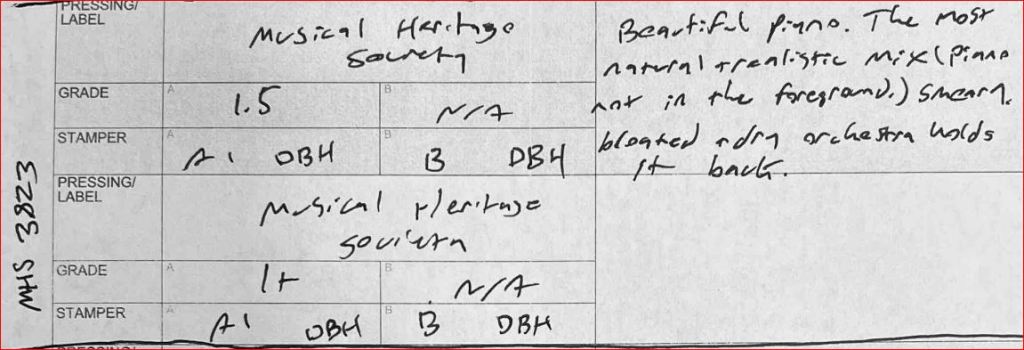 PRESSING/
LABEL
Musical Heritage
Society
GRADE
A
1.5
B
N/A
STAMPER
A
A1 DBH
B
B DBH
Beautiful piano. The most
natural + realistic mix (piano
not in the foreground.) Smeary,
bloated + dry orchestra holds
it back.
MHS 3823
PRESSING/
LABEL
Musical Heritage
Society
GRADE
A
1+
B
N/A
STAMPER
A
A1 DBH
B
B DBH